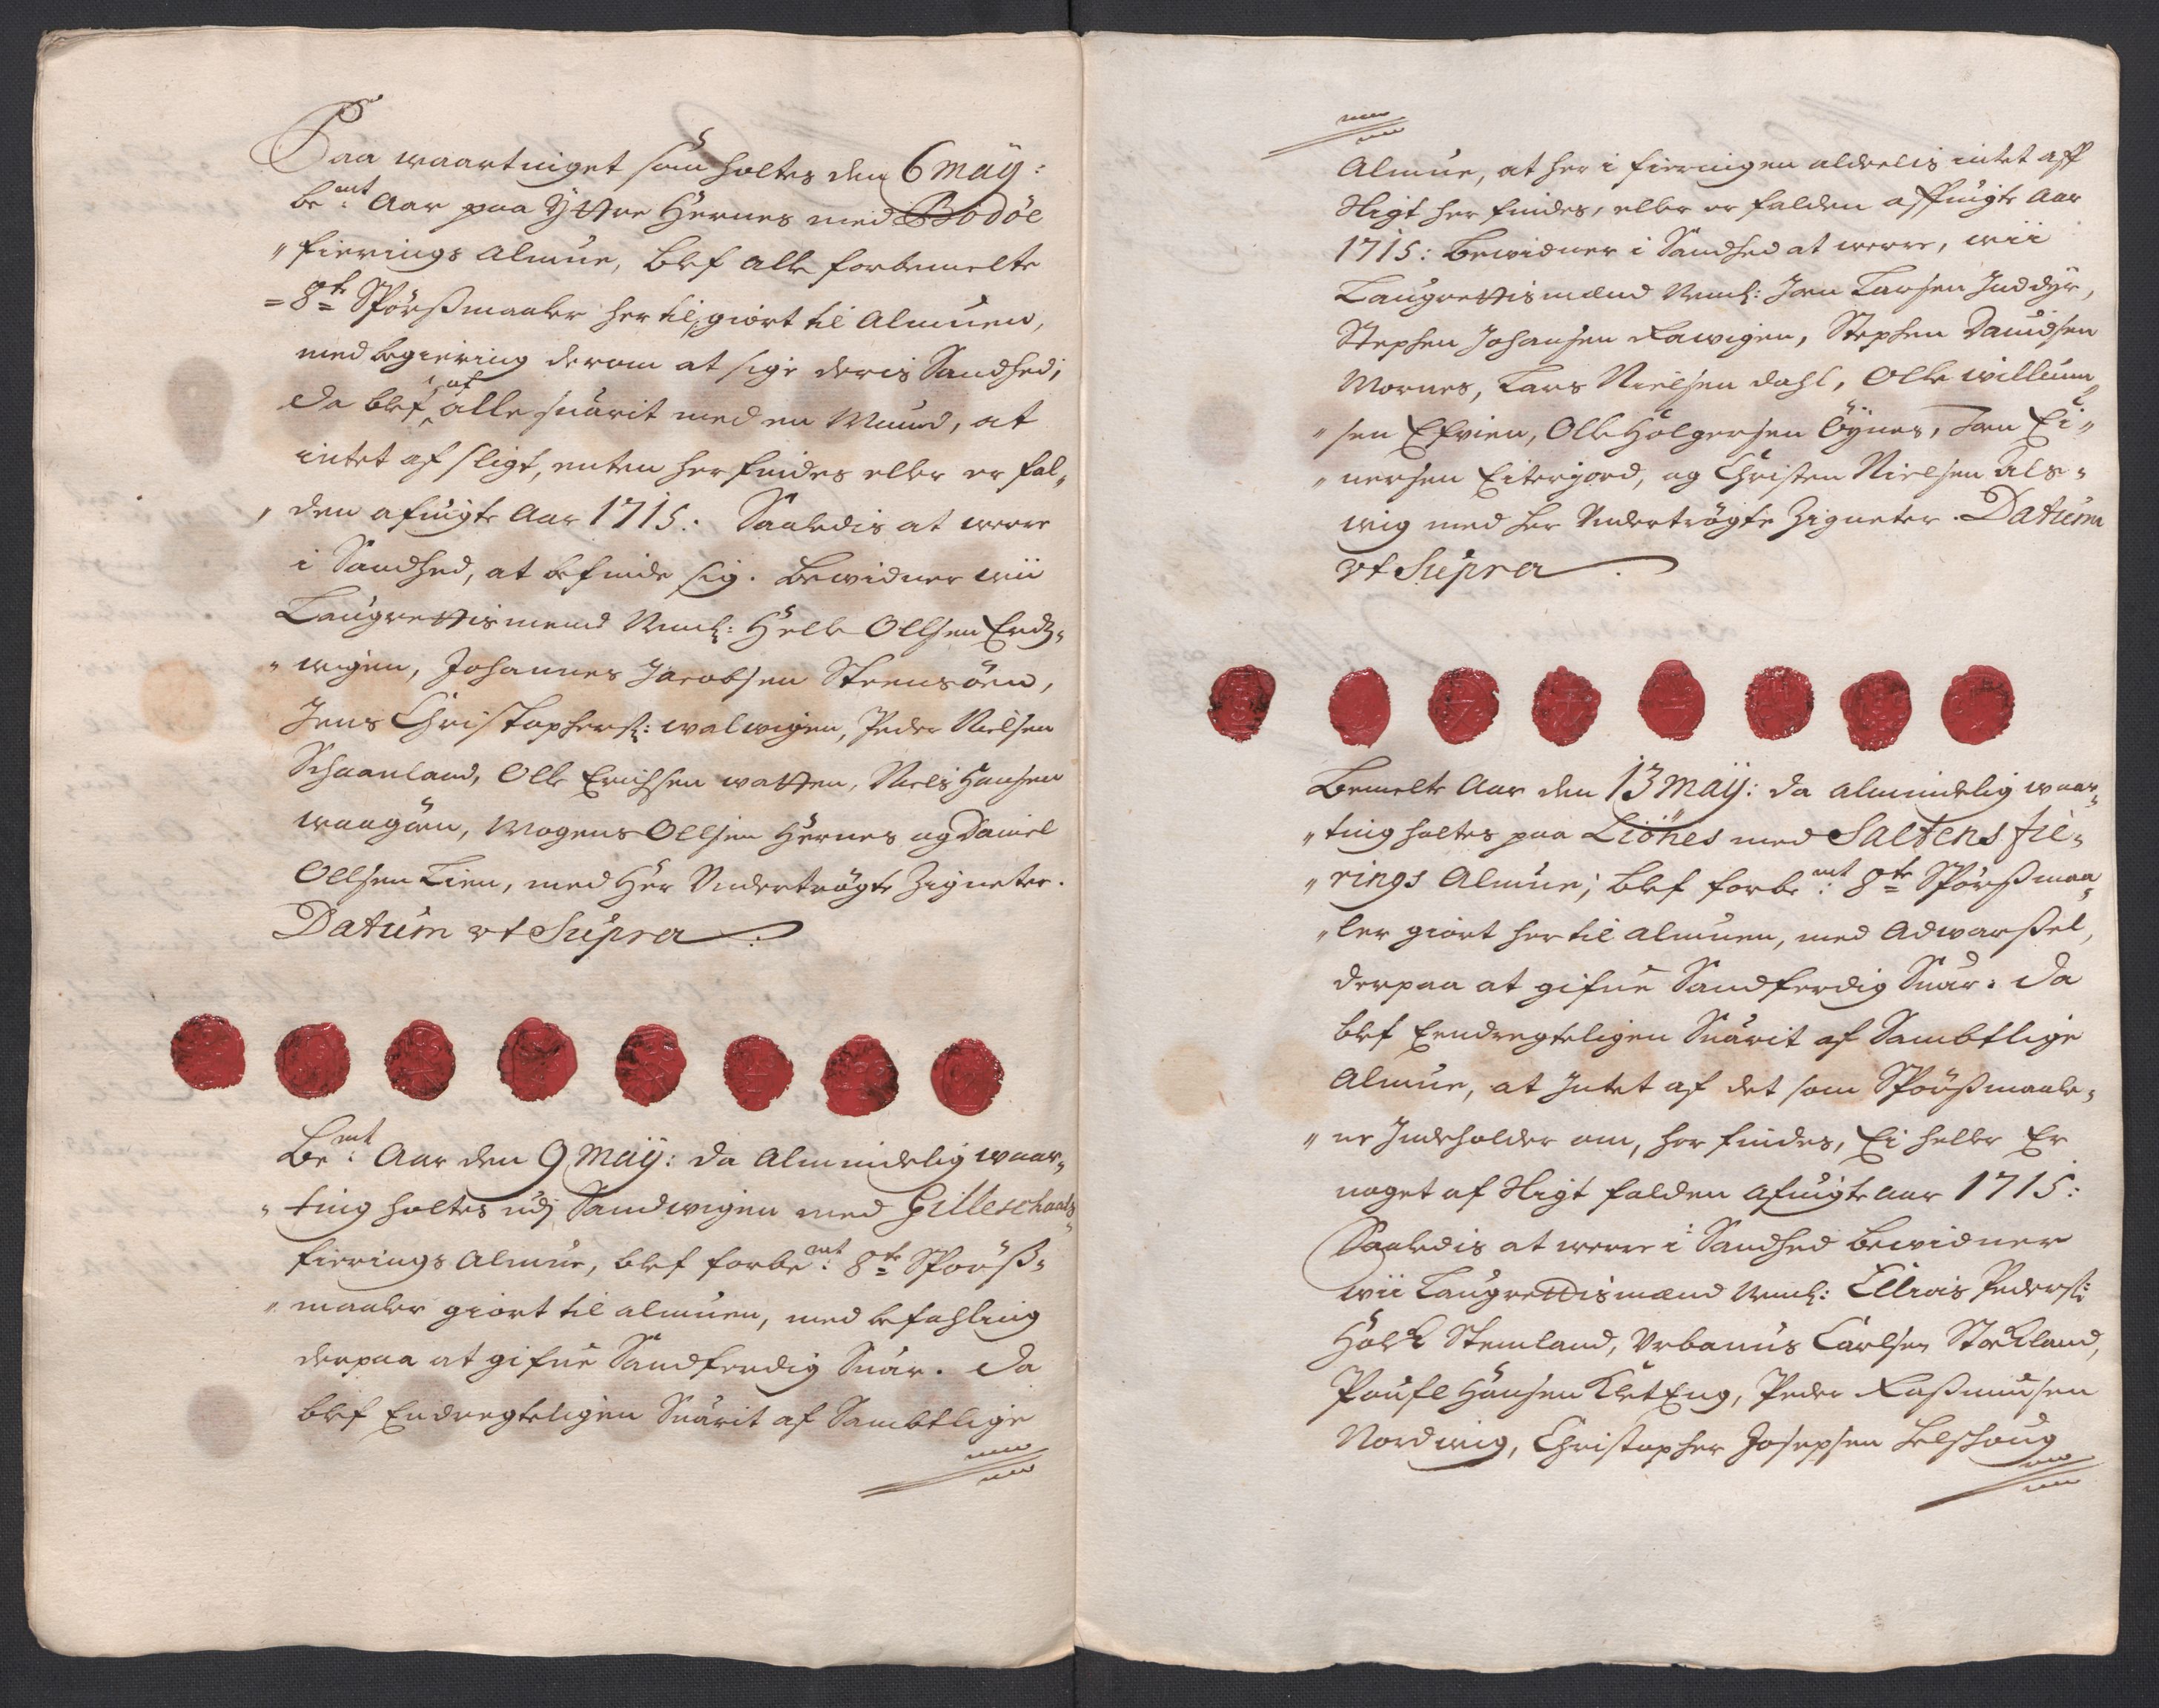 Paa waartinget som holtes den 6 Maÿ:
be:mt Aar paa Ÿttre Hernes med Bodöe
"fierings Almue, blef alle forbemelte
=8te Spörßmaaler her til giort til Almuen,
med begiering derom at sige deris Sandhed;
da blef af alle suarit med en Mund, at
intet af sligt, enten her findes eller er fal„
„den afuigte Aar 1715: Saaledis at were
i Sandhed, at befinde sig. Bewidner wii
Laugrettismend Nemlig: Helle Ollsen
„wigen, Johannes Jacobsen Steensöen,
Jens Christophers: walwigen, Peder Nielsen
Schaanland, Olle Erichsen watten, Niels Hansen
waagöen, Mogens Ollsen Hernes og Daniel
Ollsen Lien, med Her Undertrögte Zigneter.
Datum ut Supra
Be:mt Aar den 9 Maÿ: da Almindelig waar„
„ting holtes udj Sandwigen med Gilleschaals
fierings Almue, blef forbe:mt 8te Spörß„
„maaler giort til almuen, med befahling
derpaa at gifue Sandferdig Suar. da
blef Endregteligen Suarit af Sambtlige
Almue, at her i fieringen aldeelis intet aff
Sligt her findes, eller er falden affuigte Aar
1715: Bewidner i Sandhed at were, wii
Laugrettismænd Nemlig: Jon Larsen Inddÿr,
Stephen Johansen Rawigen, Stephen Dauidsen
Mornes, Lars Nielsen dahl, Olle willum„
„sen Efvien, Olle Holgersen Öÿnes, Jon Ei„
„nersen Eiterjord, og Christen Nielsen Als„
wig med her Undertrögte Zigneter. Datum
ut Supra
Bemelte Aar den 13 Maÿ: da almindelig waar„
„ting holtes paa Liönes med Saltens fie„
„rings Almue; blef forbe:mt 8te Spörßmaa„
„ler giort her til almuen, med Adwarßel,
derpaa at gifue Sandferdig Suar. da
blef Eendregteligen Suarit af Sambtlige
Almue, at Intet af det som Spörßmaale„
„ne Indeholder om, her findes, Ei heller Er
noget af Sligt falden afuigte aar 1715:
Saaledis at were i Sandhed bewidner
wii Laugrettismænd Nemlig: Ellias Peders:
Holk Stemland, Urbanus Carlsen Storkland,
Poufl Hansen KletEng, Peder Raßmusen
Nordwig, Christopher Josepsen